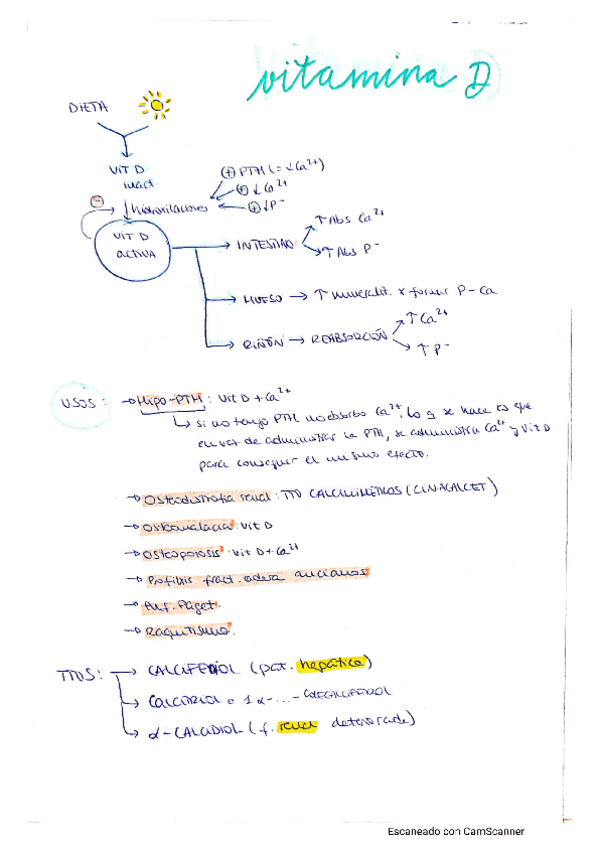 vitamina D
DIETA
VIT D
inact.
⊕ PTH (= ↓Ca²⁺)
⊕ ↓Ca²⁺
⊕ ↓P⁻
⊖
↓hidroxilaciones
VIT D
ACTIVA
→ INTESTINO
↑ Abs Ca²⁺
↑ Abs P⁻
→ HUESO → ↑ mineraliz. x formar P-Ca
→ RIÑÓN → REABSORCIÓN
↑ Ca²⁺
↑ P⁻
USOS: → Hipo-PTH: Vit D + Ca²⁺
↳ si no tengo PTH no absorbo Ca²⁺, lo q se hace es que
en vez de administrar la PTH, se administra Ca²⁺ y Vit D
para conseguir el mismo efecto.
→ Osteodistrofia renal: TTO CALCIMIMÉTICOS (CINACALCET)
→ Osteomalacia: Vit D
→ Osteoporosis: Vit D + Ca²⁺
→ Profilxis fract. cadera ancianos
→ Enf. Paget.
→ Raquitismo.
TTOS: → CALCIFEDIOL (pat. hepática)
→ CALCITRIOL o 1α-...-COLECALCIFEROL
→ α-CALCIDIOL (f. renal deteriorada)
Escaneado con CamScanner